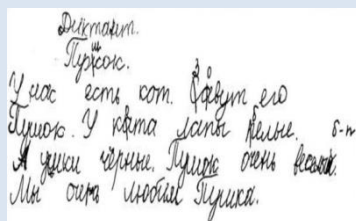 Диктант.
Пушок.
У нас есть кот. Зовут его
Пушок. У кота лапы белые. б-т
А ушки чёрные. Пушок очень весёлый.
Мы очень любим Пушка.